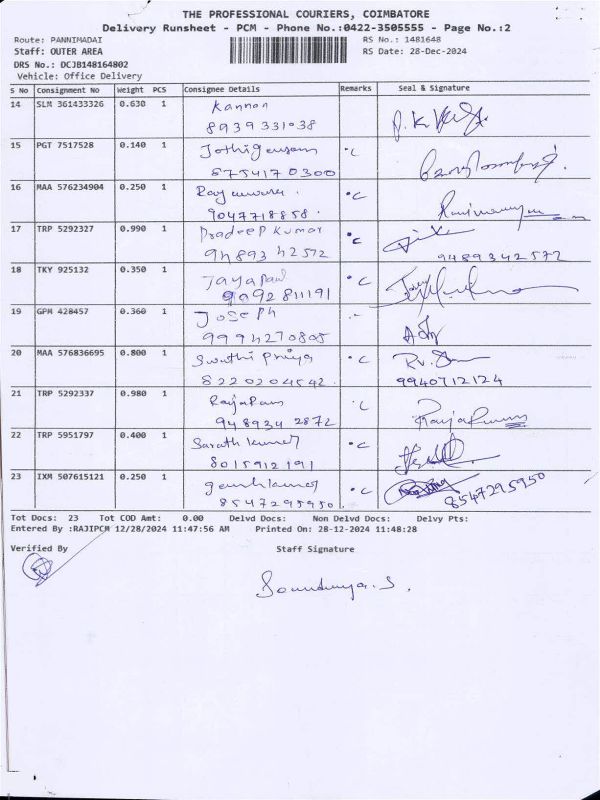 THE PROFESSIONAL COURIERS, COIMBATORE
Delivery Runsheet - PCM - Phone No.:0422-3505555 - Page No.:2
Route: PANNIMADAI
RS No.: 1481648
Staff: OUTER AREA
RS Date: 28-Dec-2024
DRS No.: DCJB148164802
Vehicle: Office Delivery
S No Consignment No Weight PCS Consignee Details Remarks Seal & Signature
14 SLM 361433326 0.630 1 Kannan
8939331038
15 PGT 7517528 0.140 1
8754170300
16 MAA 576234904 0.250 1
9047718858.
17 TRP 5292327 0.990 1 Pradeep Kumar
9489342572 9489342572
18 TKY 925132 0.350 1 Jayapaul
9092811191
19 GPM 428457 0.360 1 Joseph
9994270805
20 MAA 576836695 0.800 1 Swathi Priya
8220204542. 9940712124
21 TRP 5292337 0.980 1
948934 2872
22 TRP 5951797 0.400 1 Sarath Kumar
8015912191
23 IXM 507615121 0.250 1
8547295950 8547295950
Tot Docs: 23 Tot COD Amt: 0.00 Delvd Docs: Non Delvd Docs: Delvy Pts:
Entered By :RAJIPCM 12/28/2024 11:47:56 AM Printed On: 28-12-2024 11:48:28
Verified By Staff Signature
Soundarya.S.